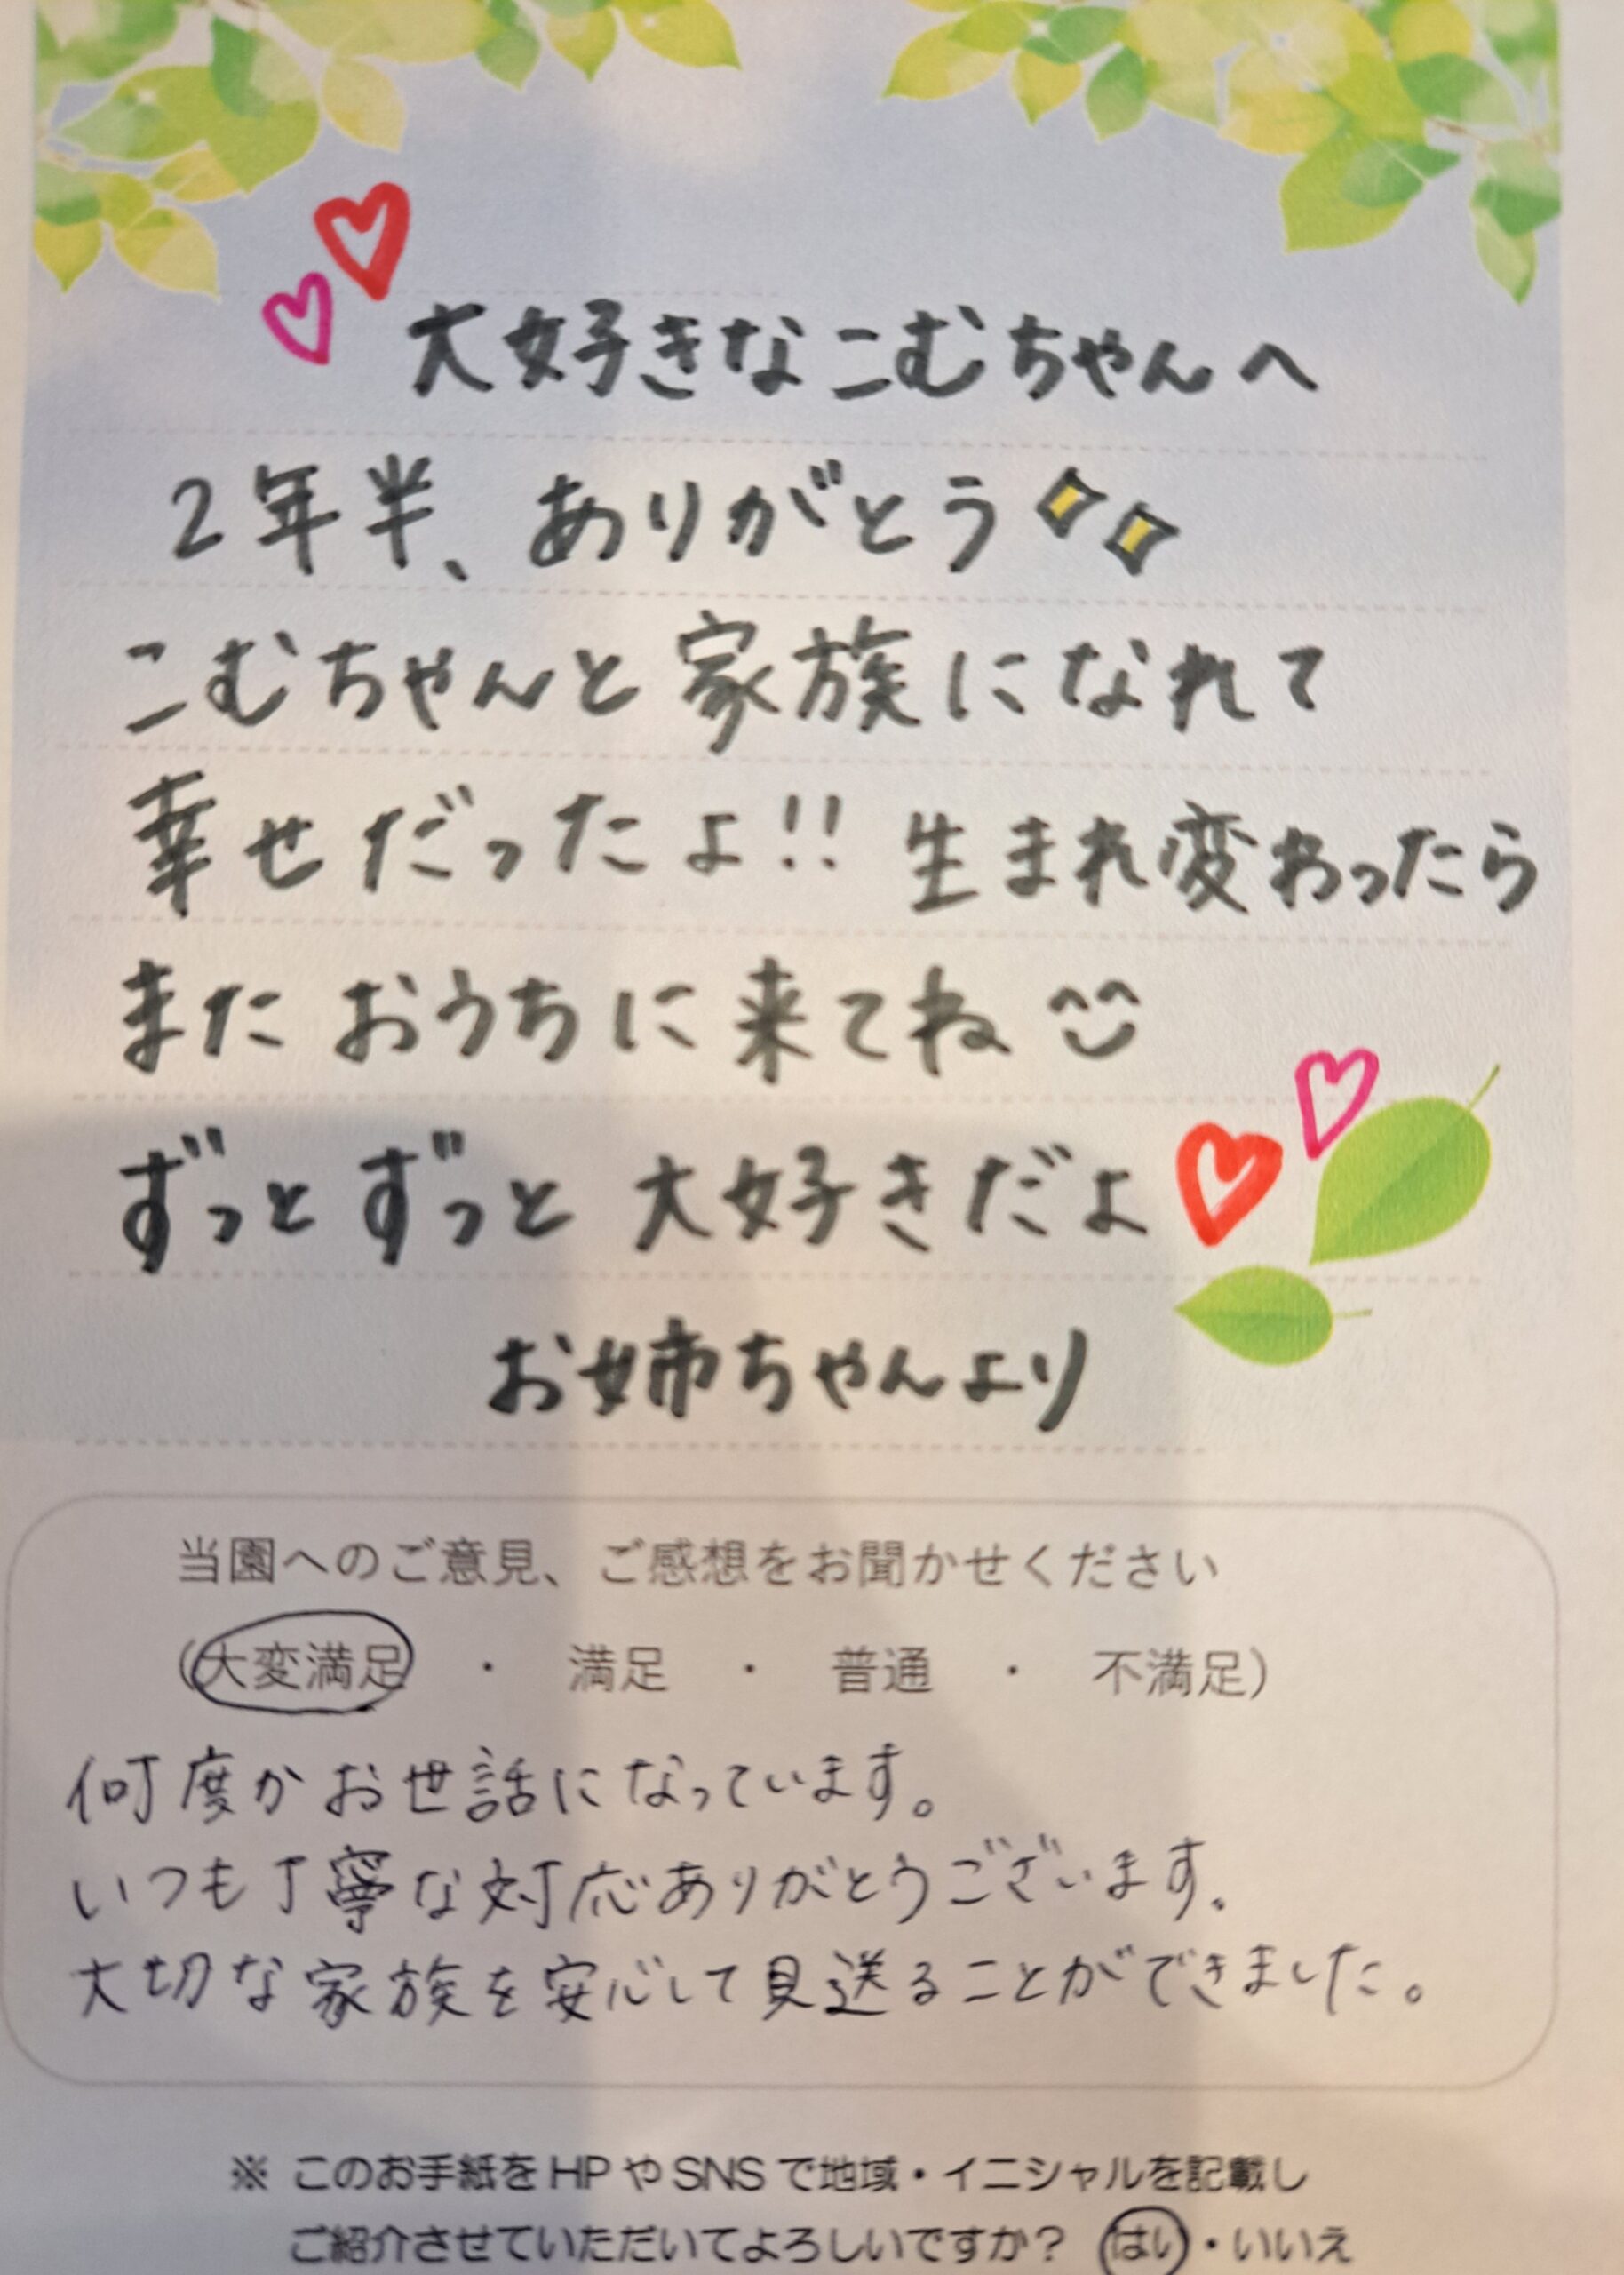 大好きなこむちゃんへ
2年半、ありがとう
こむちゃんと家族になれて
幸せだったよ!! 生まれ変わったら
またおうちに来てね
ずっとずっと大好きだよ
お姉ちゃんより
当園へのご意見、ご感想をお聞かせください
(大変満足 ・ 満足 ・ 普通 ・ 不満足)
何度かお世話になっています。
いつも丁寧な対応ありがとうございます。
大切な家族を安心して見送ることができました。
※ このお手紙をHPやSNSで地域・イニシャルを記載し
ご紹介させていただいてよろしいですか? はい・いいえ